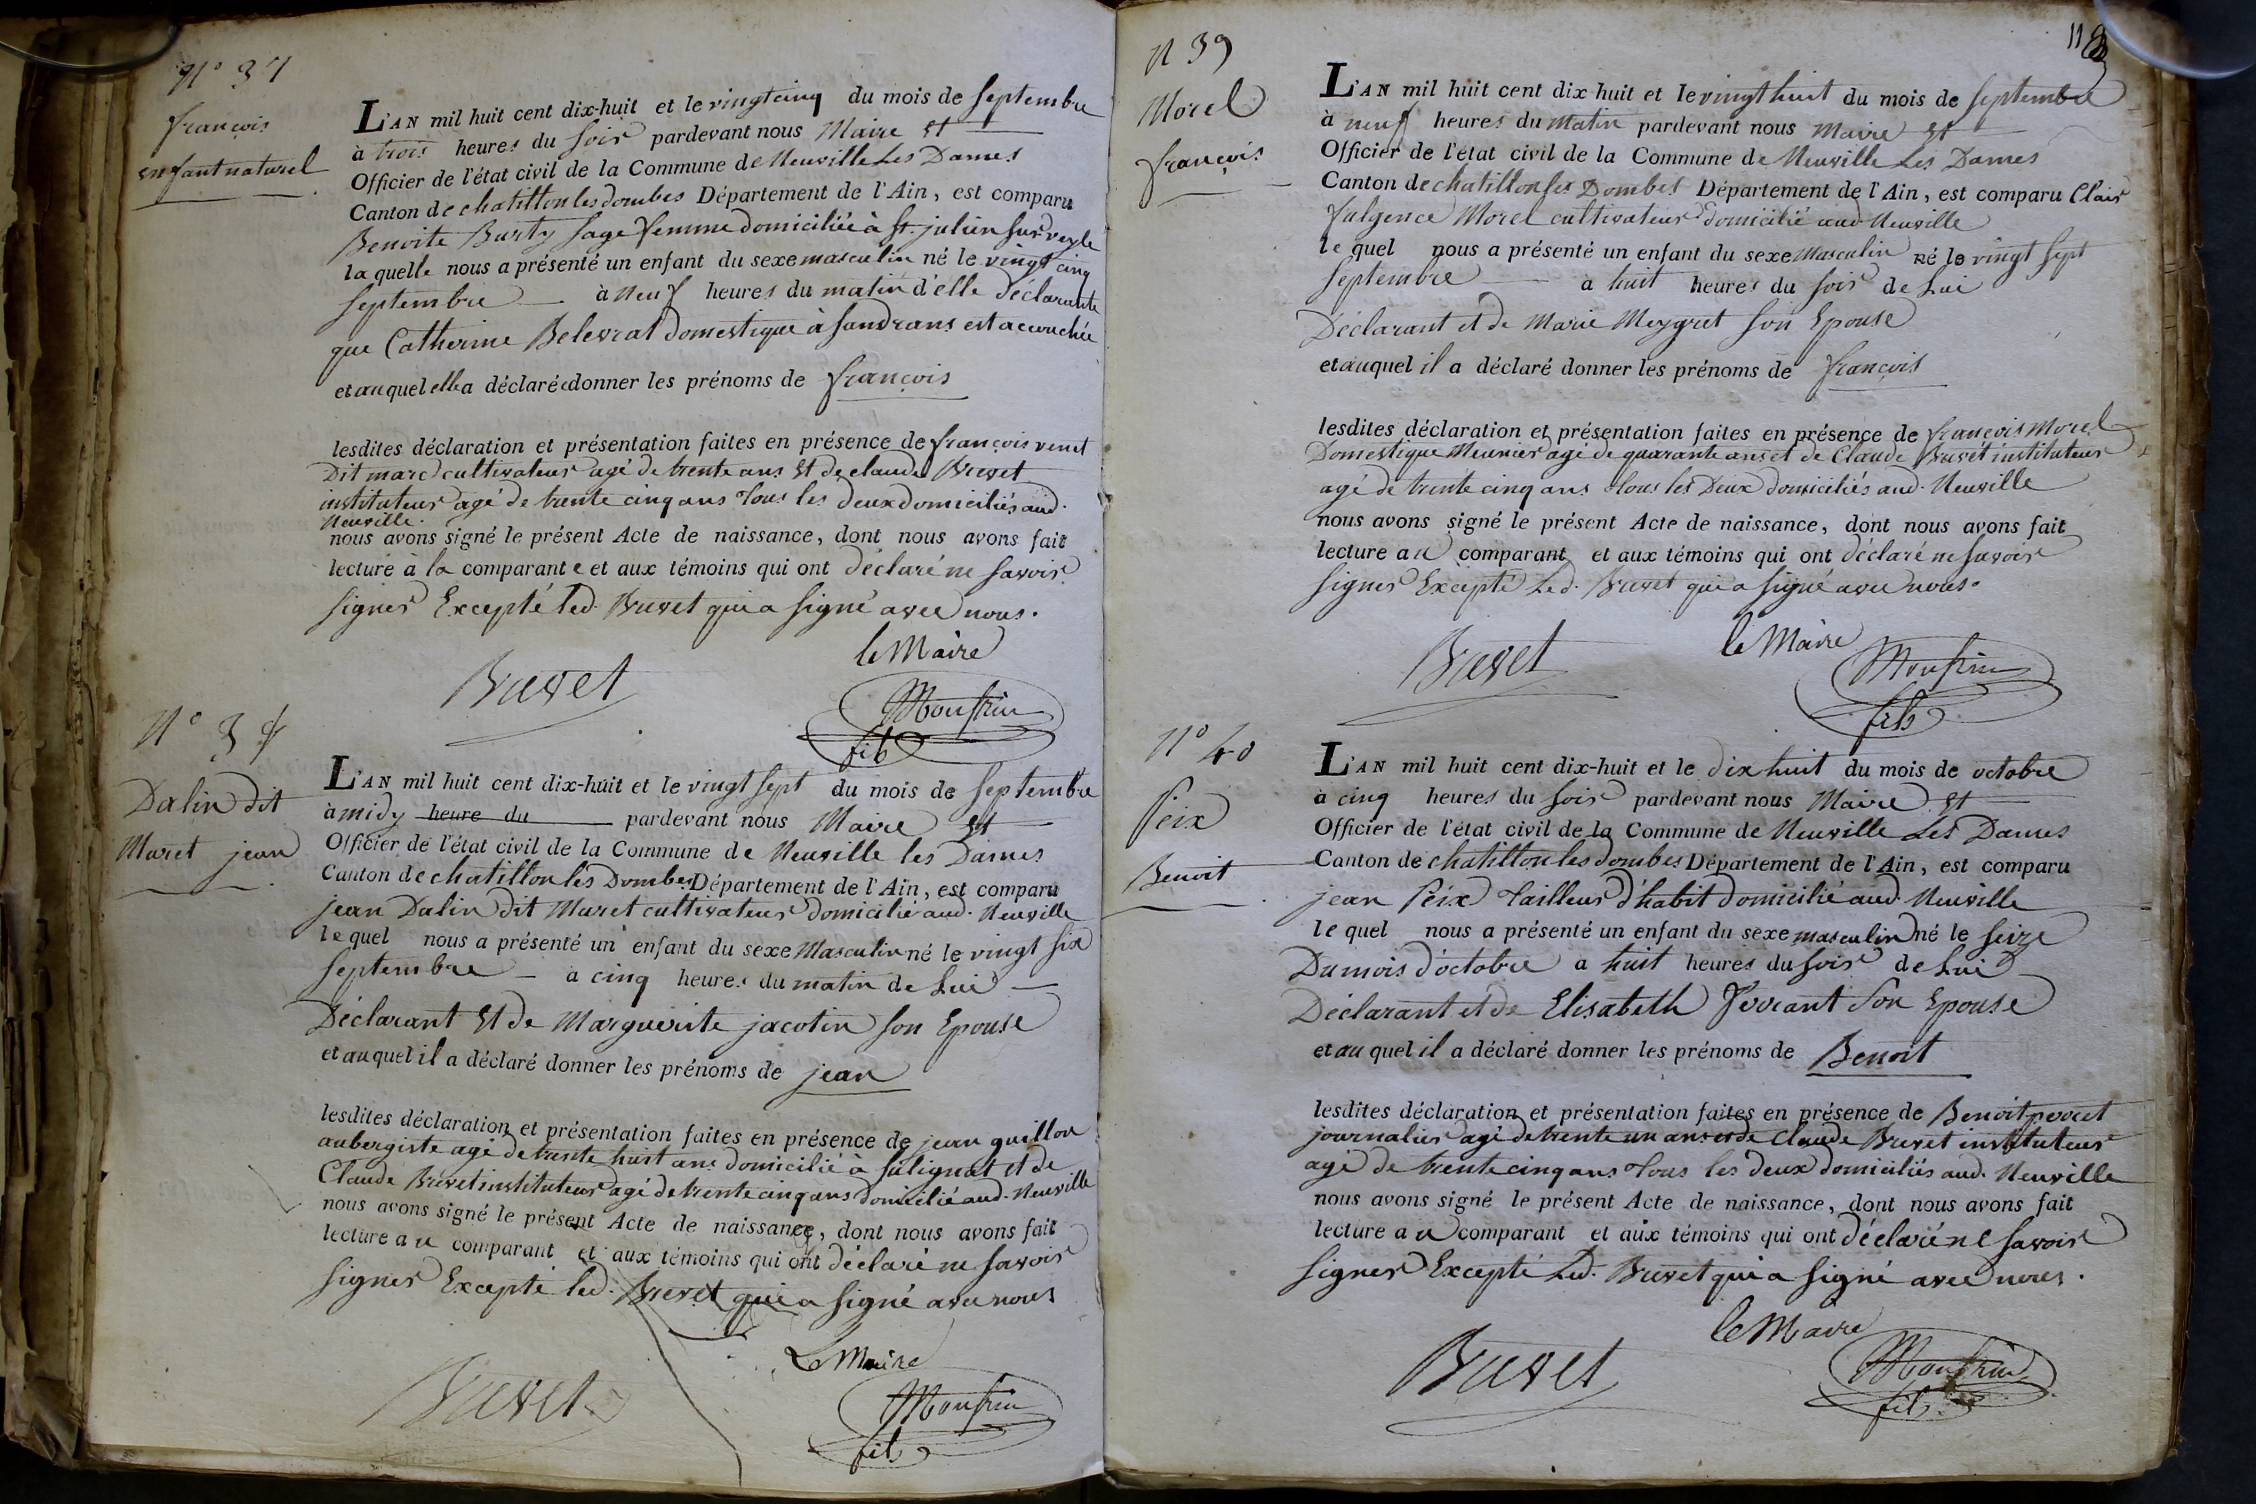 N° 37
françois
enfant naturel
L'AN mil huit cent dix-huit et le vingt cinq du mois de septembre
à trois heures du soir pardevant nous Maire Et
Officier de l'état civil de la Commune de Neuville Les Dames
Canton de chatillon les dombes Département de l'Ain, est comparu
Benoite Burty sage femme domiciliée à St. julien sur veyle
la quelle nous a présenté un enfant du sexe masculin né le vingt cinq
septembre à Neuf heures du matin d'elle déclarante
que Catherine Belevrat domestique à sandrans est accouchée
et au quel elle a déclaré donner les prénoms de françois
lesdites déclaration et présentation faites en présence de françois venet
Dit marc cultivateur agé de trente ans Et de claude Brevet
instituteur agé de trente cinq ans tous les deux domiciliés aud.
Neuville.
nous avons signé le présent Acte de naissance, dont nous avons fait
lecture à la comparante et aux témoins qui ont déclaré ne savoir
signer Excepté led. Brevet qui a signé avec nous.
le Maire
Brevet
Monfrin
fils
N° 38
Dalin dit
Muret jean
L'AN mil huit cent dix-huit et le vingt sept du mois de septembre
à midy heure du pardevant nous Maire Et
Officier de l'état civil de la Commune de Neuville les Dames
Canton de chatillon les Dombes Département de l'Ain, est comparu
jean Dalin dit Muret cultivateur domicilié aud. Neuville
le quel nous a présenté un enfant du sexe Masculin né le vingt six
septembre à cinq heures du matin de Lui
Déclarant Et de Marguerite jacotin son Epouse
et au quel il a déclaré donner les prénoms de jean
lesdites déclaration et présentation faites en présence de jean guillon
aubergiste agé de trente huit ans domicilié à sulignat et de
Claude Brevet instituteur agé de trente cinq ans domicilié aud. Neuville
nous avons signé le présent Acte de naissance, dont nous avons fait
lecture au comparant et aux témoins qui ont déclaré ne savoir
signer Excepté led. Brevet qui a signé avec nous
Le Maire
Brevet
Monfrin
fils
118
N 39
Morel
françois
L'AN mil huit cent dix-huit et le vingt huit du mois de septembre
à neuf heures du matin pardevant nous Maire Et
Officier de l'état civil de la Commune de Neuville Les Dames
Canton de chatillon les Dombes Département de l'Ain, est comparu Clair
fulgence Morel cultivateur domicilié aud Neuville
le quel nous a présenté un enfant du sexe Masculin né le vingt sept
septembre à huit heures du soir de Lui
Déclarant et de Marie Meygret son Epouse
et auquel il a déclaré donner les prénoms de françois
lesdites déclaration et présentation faites en présence de françois Morel
Domestique Meunier agé de quarante ans et de Claude Brevet instituteur
agé de trente cinq ans tous les Deux domiciliés aud. Neuville
nous avons signé le présent Acte de naissance, dont nous avons fait
lecture au comparant et aux témoins qui ont déclaré ne savoir
signer Excepté Led. Brevet qui a signé avec nous.
le Maire
Brevet
Monfrin
fils
N° 40
Peix
Benoit
L'AN mil huit cent dix-huit et le dix huit du mois de octobre
à cinq heures du soir pardevant nous Maire Et
Officier de l'état civil de la Commune de Neuville Les Dames
Canton de chatillon les dombes Département de l'Ain, est comparu
jean Peix tailleur d'habit domicilié aud. Neuville
le quel nous a présenté un enfant du sexe masculin né le seize
Du mois d'octobre à huit heures du soir de Lui
Déclarant et de Elisabeth son Epouse
et au quel il a déclaré donner les prénoms de Benoit
lesdites déclaration et présentation faites en présence de Benoit perret
journalier agé de trente un ans et de Claude Brevet instituteur
agé de trente cinq ans tous les deux domiciliés aud. Neuville
nous avons signé le présent Acte de naissance, dont nous avons fait
lecture au comparant et aux témoins qui ont déclaré ne savoir
signer Excepté Led. Brevet qui a signé avec nous.
le Maire
Brevet
Monfrin
fils